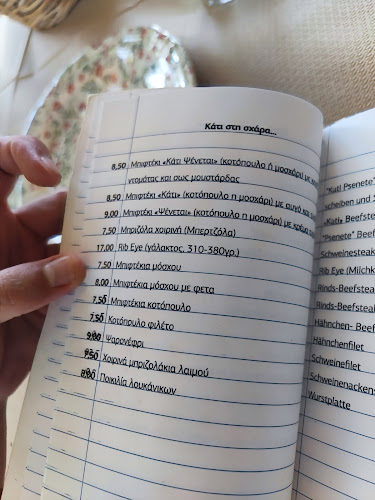 Κάτι στη σχάρα...
8,50 Μπιφτέκι «Κάτι Ψένεται» (κοτόπουλο ή μοσχάρι) με
ντομάτας και σως μουστάρδας
8,50 Μπιφτέκι «Κάτι» (κοτόπουλο η μοσχάρι) με αυγό και
9,00 Μπιφτέκι «Ψένεται» (κοτοπουλο η μοσχάρι) με κρέμα
7,50 Μπριζόλα χοιρινή (Μπερτζόλα)
17,00 Rib Eye (γάλακτος, 310-380γρ.)
7,50 Μπιφτέκια μόσχου
8,00 Μπιφτέκια μόσχου με φετα
7,50 Μπιφτέκια κοτόπουλο
7,50 Κοτόπουλο φιλέτο
9,00 Ψαρονέφρι
7,50 Χοιρινά μπριζολάκια λαιμού
8,00 Ποικιλία λουκάνικων
"Kati Psenete"
scheiben und S
«Kati» Beefste
"Psenete" Beef
Schweinesteak
Rib Eye (Milchk
Rinds-Beefstea
Rinds-Beefstea
Hähnchen- Beef
Hähnchenfilet
Schweinefilet
Schweinenackens
Wurstplatte